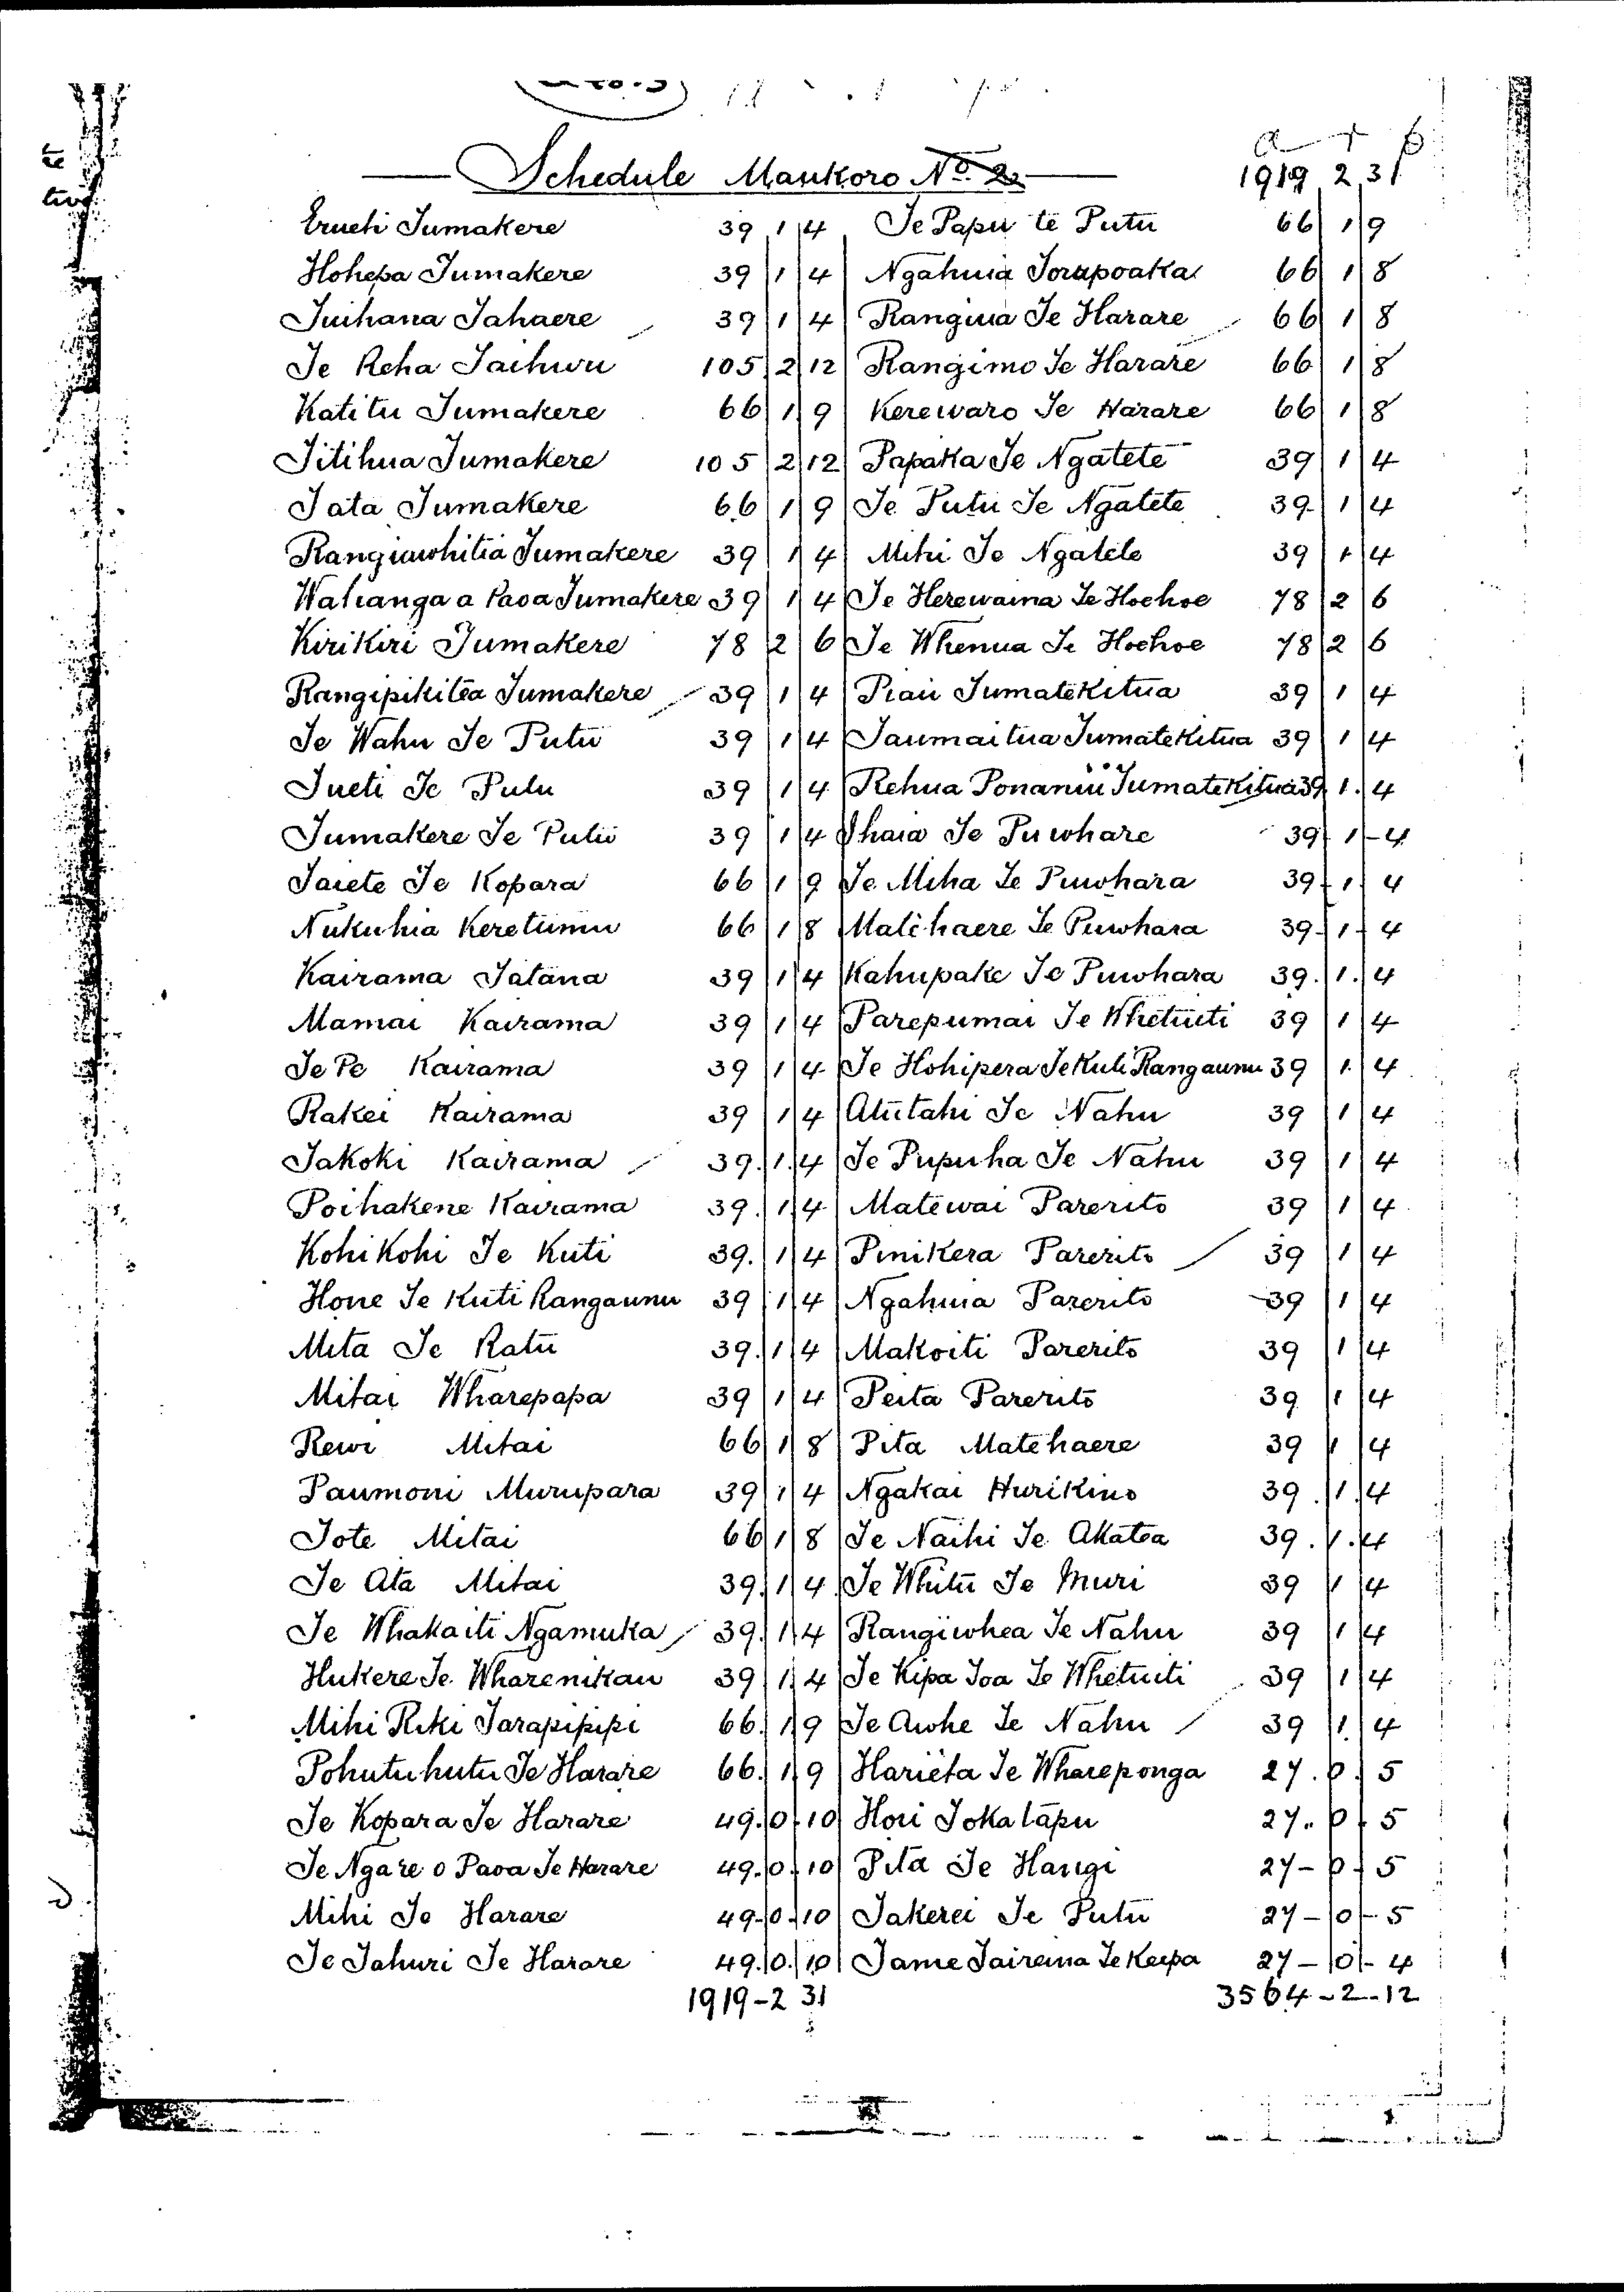 Schedule Maukoro No. 2
a r p
1919 2 31
Erueti Tumakere 39 1 4 Te Papu te Putu 66 1 9
Hohepa Tumakere 39 1 4 Ngahuia Torupoaka 66 1 8
Tuihana Tahaere 39 1 4 Rangiua Te Harare 66 1 8
Te Reha Taihuru 105 2 12 Rangimo Te Harare 66 1 8
Katitu Tumakere 66 1 9 Kerewaro Te Harare 66 1 8
Titihua Tumakere 105 2 12 Papaka Te Ngatete 39 1 4
Tata Tumakere 66 1 9 Te Putu Te Ngatete 39 1 4
Rangiawhitia Tumakere 39 1 4 Mihi Te Ngatete 39 1 4
Watianga a Paoa Tumakere 39 1 4 Te Herewaina Te Hoehoe 78 2 6
Kirikiri Tumakere 78 2 6 Te Whenua Te Hoehoe 78 2 6
Rangipikitea Tumakere 39 1 4 Piau Tumatekitua 39 1 4
Te Wahu Te Putu 39 1 4 Taumaitua Tumatekitua 39 1 4
Tueti Te Putu 39 1 4 Rehua Ponamu Tumatekitua 39 1 4
Tumakere Te Putu 39 1 4 Ihaia Te Puwhare 39 1 4
Taiete Te Kopara 66 1 9 Te Miha Te Puwhara 39 1 4
Nukuhia Keretumu 66 1 8 Matehaere Te Puwhara 39 1 4
Kairama Tatana 39 1 4 Kahupake Te Puwhara 39 1 4
Mamai Kairama 39 1 4 Parepumai Te Whetuiti 39 1 4
Te Pe Kairama 39 1 4 Te Hohipera Te Kuti Rangaunu 39 1 4
Rakei Kairama 39 1 4 Atutahi Te Nahu 39 1 4
Takoki Kairama 39 1 4 Te Pupuha Te Nahu 39 1 4
Poihakene Kairama 39 1 4 Matewai Parerito 39 1 4
Kohikohi Te Kuti 39 1 4 Pinikera Parerito 39 1 4
Hone Te Kuti Rangaunu 39 1 4 Ngahuia Parerito 39 1 4
Mita Te Ratu 39 1 4 Makoiti Parerito 39 1 4
Mitai Wharepapa 39 1 4 Peita Parerito 39 1 4
Rewi Mitai 66 1 8 Pita Matehaere 39 1 4
Paumoni Murupara 39 1 4 Ngakai Hurikino 39 1 4
Tote Mitai 66 1 8 Te Naihi Te Akatea 39 1 4
Te Ata Mitai 39 1 4 Te Whitu Te Muri 39 1 4
Te Whakaiti Ngamuka 39 1 4 Rangiwhea Te Nahu 39 1 4
Hukere Te Wharenikau 39 1 4 Te Kipa Toa Te Whetuiti 39 1 4
Mihi Riki Tarapipipi 66 1 9 Te Awhe Te Nahu 39 1 4
Pohutuhutu Te Harare 66 1 9 Harieta Te Whareponga 27 0 5
Te Kopara Te Harare 49 0 10 Hori Tokatapu 27 0 5
Te Ngare o Paoa Te Harare 49 0 10 Pita Te Hangi 27 - 0 5
Mihi Te Harare 49 0 10 Takerei Te Putu 27 - 0 - 5
Te Tahuri Te Harare 49 0 10 Tame Taireina Te Keepa 27 - 0 - 4
1919 - 2 31 3564 - 2 - 12